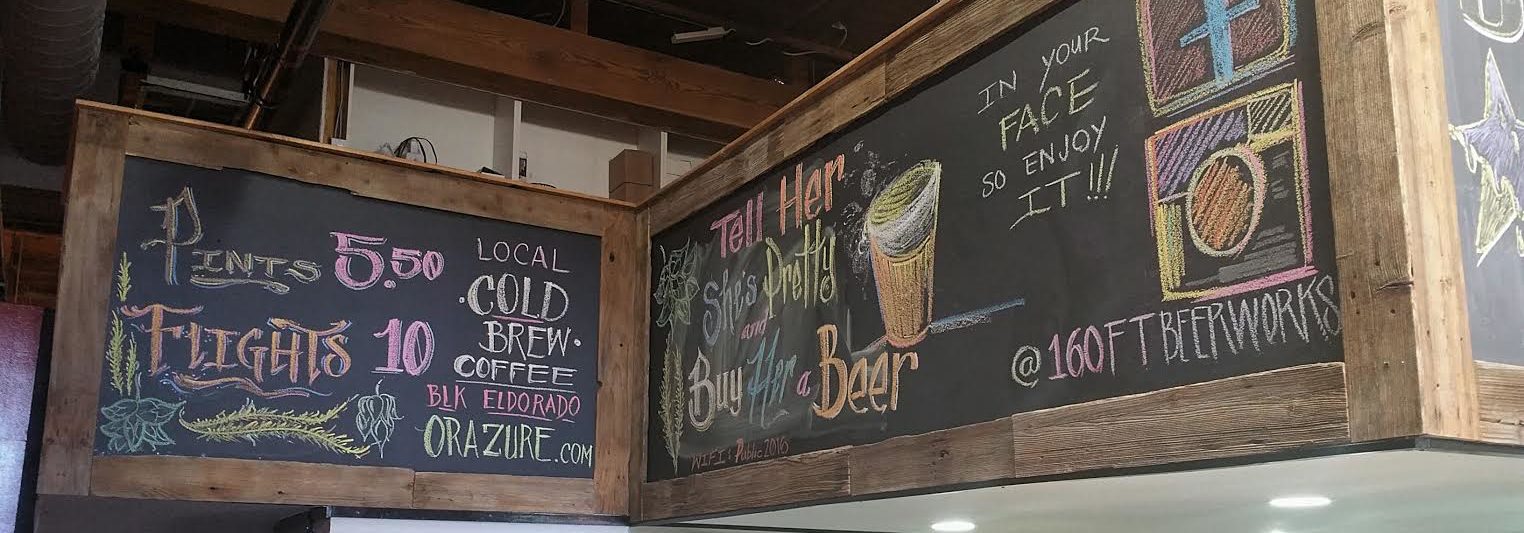 Pints 5.50
Flights 10
LOCAL
COLD
BREW
COFFEE
BLK ELDORADO
ORAZURE.COM
Tell Her
She's Pretty
and
Buy Her a Beer
WIFI: Public2016
IN YOUR
FACE
SO ENJOY
IT!!!
@160FTBEERWORKS